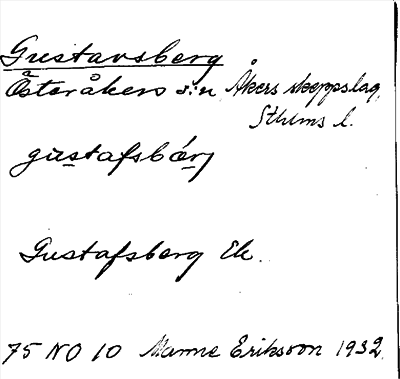 Gustavsberg
Österåkers s:n Åkers skeppslag,
Sthlms l.
gustafsbärj
Gustafsberg Ek.
75 NO 10 Manne Eriksson 1932